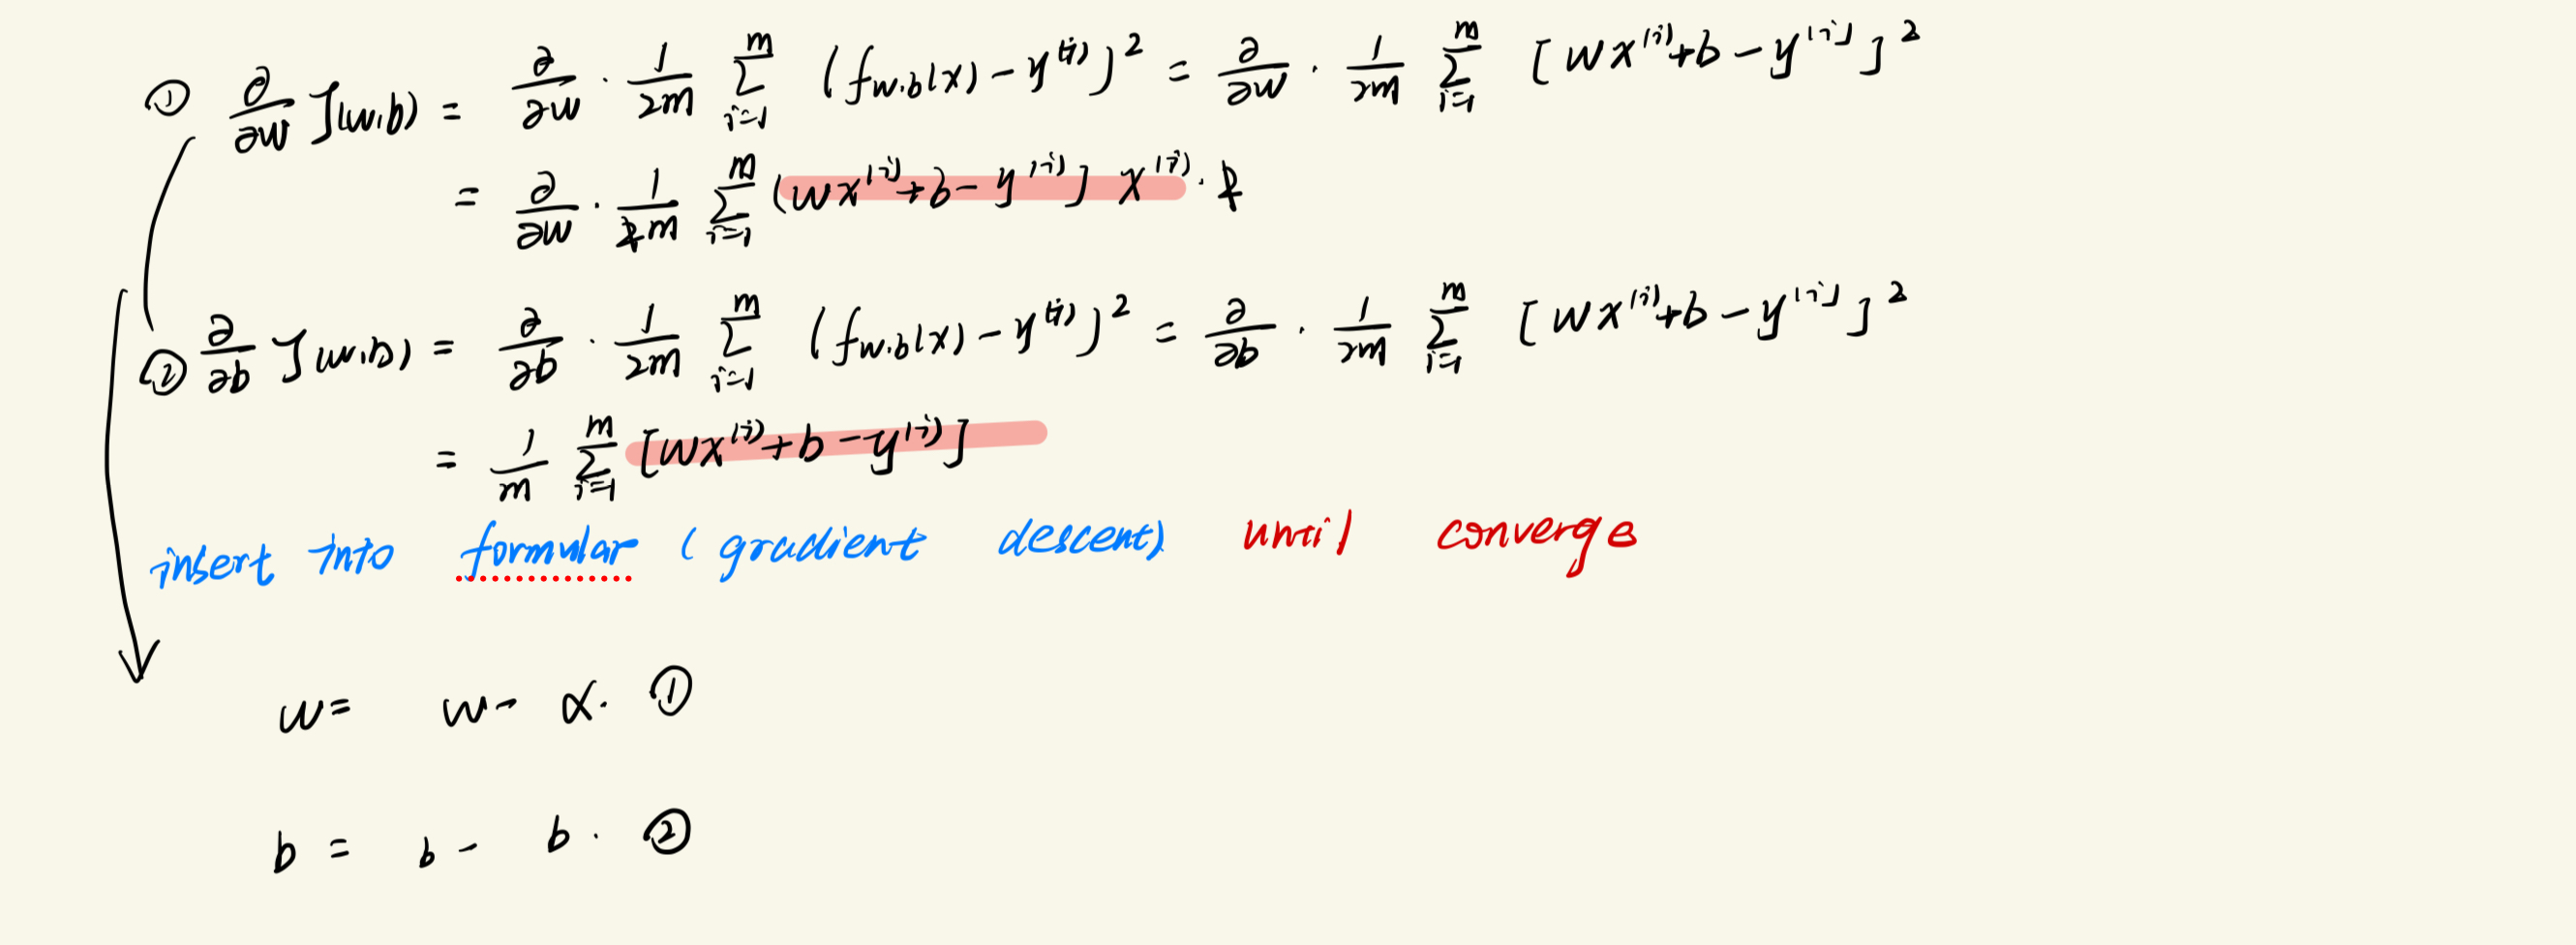 ① ∂/∂w J(w,b) = ∂/∂w · 1/2m Σ_{i=1}^{m} (f_{w,b}(x) - y^{(i)})^2 = ∂/∂w · 1/2m Σ_{i=1}^{m} [wx^{(i)} + b - y^{(i)}]^2
= ∂/∂w · 1/2m Σ_{i=1}^{m} (wx^{(i)} + b - y^{(i)}] x^{(i)} · 2
② ∂/∂b J(w,b) = ∂/∂b · 1/2m Σ_{i=1}^{m} (f_{w,b}(x) - y^{(i)})^2 = ∂/∂b · 1/2m Σ_{i=1}^{m} [wx^{(i)} + b - y^{(i)}]^2
= 1/m Σ_{i=1}^{m} [wx^{(i)} + b - y^{(i)}]
insert into formular (gradient descent) until converge
w = w - α · ①
b = b - b · ②